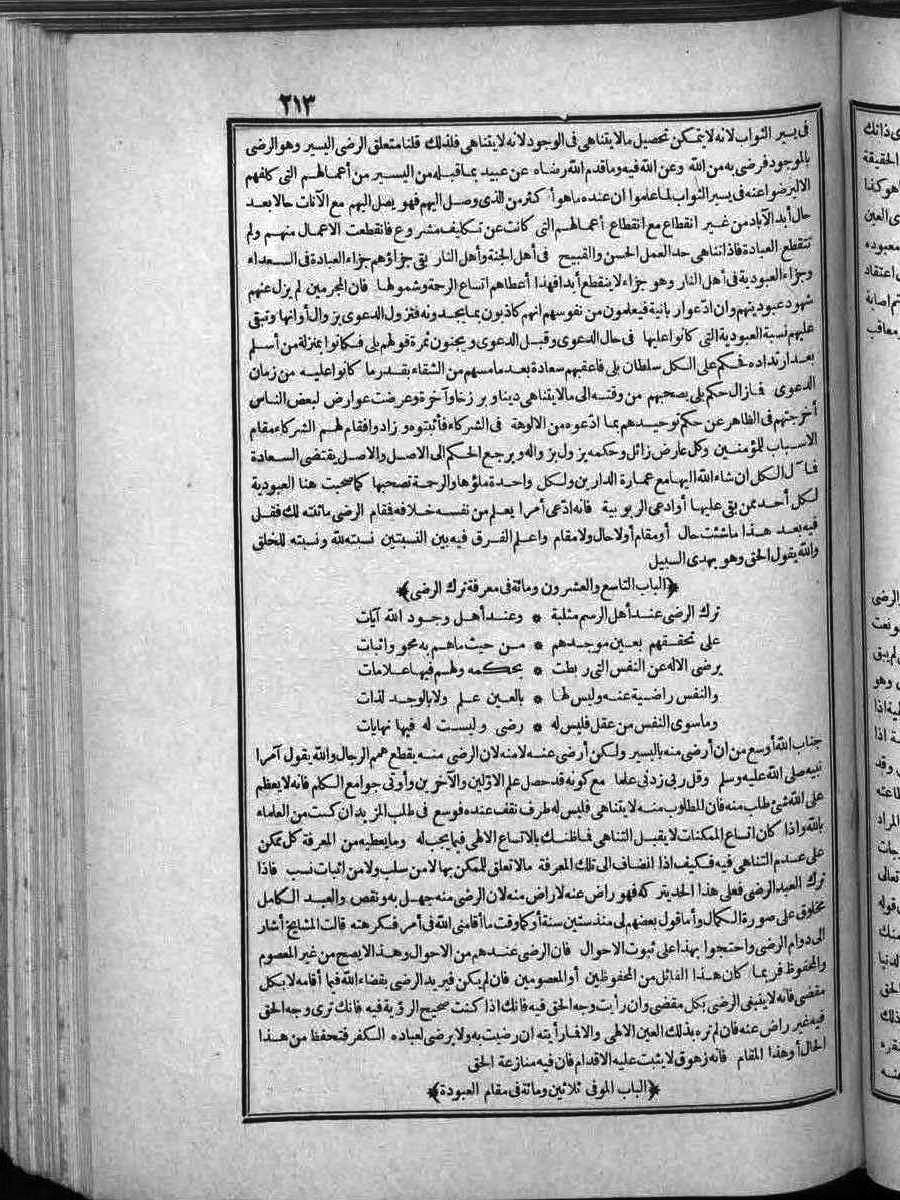 ٢١٣
فى يسير الثواب لانه لا يتمكن تحصيل مالا يتناهى فى الوجود لانه لا يتناهى فلذلك قلنا متعلق الرضى اليسير وهو الرضى
بالموجود فرضى به من الله وعن الله فيه وما قدم الله رضاه عن عبيد بما قبله من اليسير من أعمالهم التى كلفهم
الا ليرضوا عنه فى يسير الثواب لما علموا ان عنده ما هو أكثر من الذى وصل اليهم فهو يصل اليهم مع الآنات حالا بعد
حال أبد الآباد من غير انقطاع مع انقطاع أعمالهم التى كانت عن تكليف مشروع فانقطعت الاعمال منهم ولم
تنقطع العبادة فاذا تناهى حد العمل الحسن والقبيح فى أهل الجنة وأهل النار بقى جزاؤهم جزاء العبادة فى السعداء
وجزاء العبودية فى أهل النار وهو جزاء لا ينقطع أبدا فهذا أعطاهم اتساع الرحمة وشمولها فان المجرمين لم يزل عنهم
شهود عبوديتهم وان ادّعوا ربانية فيعلمون من نفوسهم انهم كاذبون بما يجدونه فتزول الدعوى بزوال أوانها وتبقى
عليهم نسبة العبودية التى كانوا عليها فى حال الدعوى وقبل الدعوى ويجنون ثمرة قولهم بلى فكانوا بمنزلة من أسلم
بعد ارتداده فحكم على الكل سلطان بلى فاعقبهم سعادة بعد ما مسهم من الشقاء بقدر ما كانوا عليه من زمان
الدعوى فما زال حكم بلى يصحبهم من وقته الى مالا يتناهى دينا وبرزخا وآخرة وعرضت عوارض لبعض الناس
أخرجتهم فى الظاهر عن حكم توحيدهم بما ادّعوه من الالوهة فى الشركاء فأثبتوه وزادوا فقام لهم الشركاء مقام
الاسباب للمؤمنين وكل عارض زائل وحكمه يزول بزواله ويرجع الحكم الى الاصل والاصل يقتضى السعادة
فمآل الكل ان شاء الله اليها مع عمارة الدارين ولكل واحدة ملؤها والرحمة تصحبها كما صحبت هنا العبودية
لكل أحد ممن بقى عليها أو ادعى الربوبية فانه ادّعى أمرا يعلم من نفسه خلافه فقام الرضى ما ثنته لك فقل
فيه بعد هذا ما شئت حال أو مقام أو لا حال ولا مقام واعلم الفرق فيه بين النسبتين نسبته لله ونسبته للخلق
والله يقول الحق وهو يهدى السبيل
﴿الباب التاسع والعشرون ومائة فى معرفة ترك الرضى﴾
ترك الرضى عند أهل الرسم مثلبة * وعند أهل وجود الله آيات
على تحققهم بعين موجدهم * من حيث ماهم به محو واثبات
يرضى الاله عن النفس التى ربطت * بحكمه ولهم فيها علامات
والنفس راضية عنه وليس لها * بالعين علم ولا بالوجد لذات
وما سوى النفس من عقل فليس له * رضى وليست له فيها نهايات
جناب الله أوسع من ان أرضى منه باليسير ولكن أرضى عنه لا منه لان الرضى منه يقطع همم الرجال والله يقول آمرا
نبيه صلى الله عليه وسلم وقل رب زدنى علما مع كونه قد حصل علم الاوّلين والآخرين وأوتى جوامع الكلم فانه لا يعظم
على الله شئ طلب منه فان المطلوب منه لا يتناهى فليس له طرف نقف عنده فوسع فى طلب المزيد ان كنت من العلماء
بالله واذا كان اتساع الممكنات لا يقبل التناهى فما ظنك بالاتساع الالهى فيما يجب له وما يعطيه من المعرفة كل ممكن
على عدم التناهى فيه فكيف اذا انضاف الى تلك المعرفة مالا تعلق للممكن بها لا من سلب ولا من اثبات نسب فاذا
ترك العبد الرضى فعلى هذا الحد يتركه فهو راض عنه لا راض منه لان الرضى منه جهل به ونقص والعبد الكامل
مخلوق على صورة الكمال وأما قول بعضهم لى منذ ستين سنة أو كما وقت ما أقامنى الله فى أمر فكرهته قالت المشايخ أشار
الى دوام الرضى واحتجوا بهذا على ثبوت الاحوال فان الرضى عندهم من الاحوال وهذا لا يصح من غير المعصوم
والمحفوظ فربما كان هذا القائل من المحفوظين أو المعصومين فان لم يكن فيريد الرضى بقضاء الله فيما أقامه لا بكل
مقضى فانه لا ينبغى الرضى بكل مقضى وان رأيت وجه الحق فيه فانك اذا كنت صحيح الرؤية فيه فانك ترى وجه الحق
فيه غير راض عنه فان لم تره بذلك العين الالهى والا فما رأيته ان رضيت به ولا يرضى لعباده الكفر فتحفظ من هذا
الحال أو هذا المقام فانه زهوق لا يثبت عليه الاقدام فان فيه منازعة الحق
﴿الباب الموفى ثلاثين ومائة فى مقام العبودة﴾